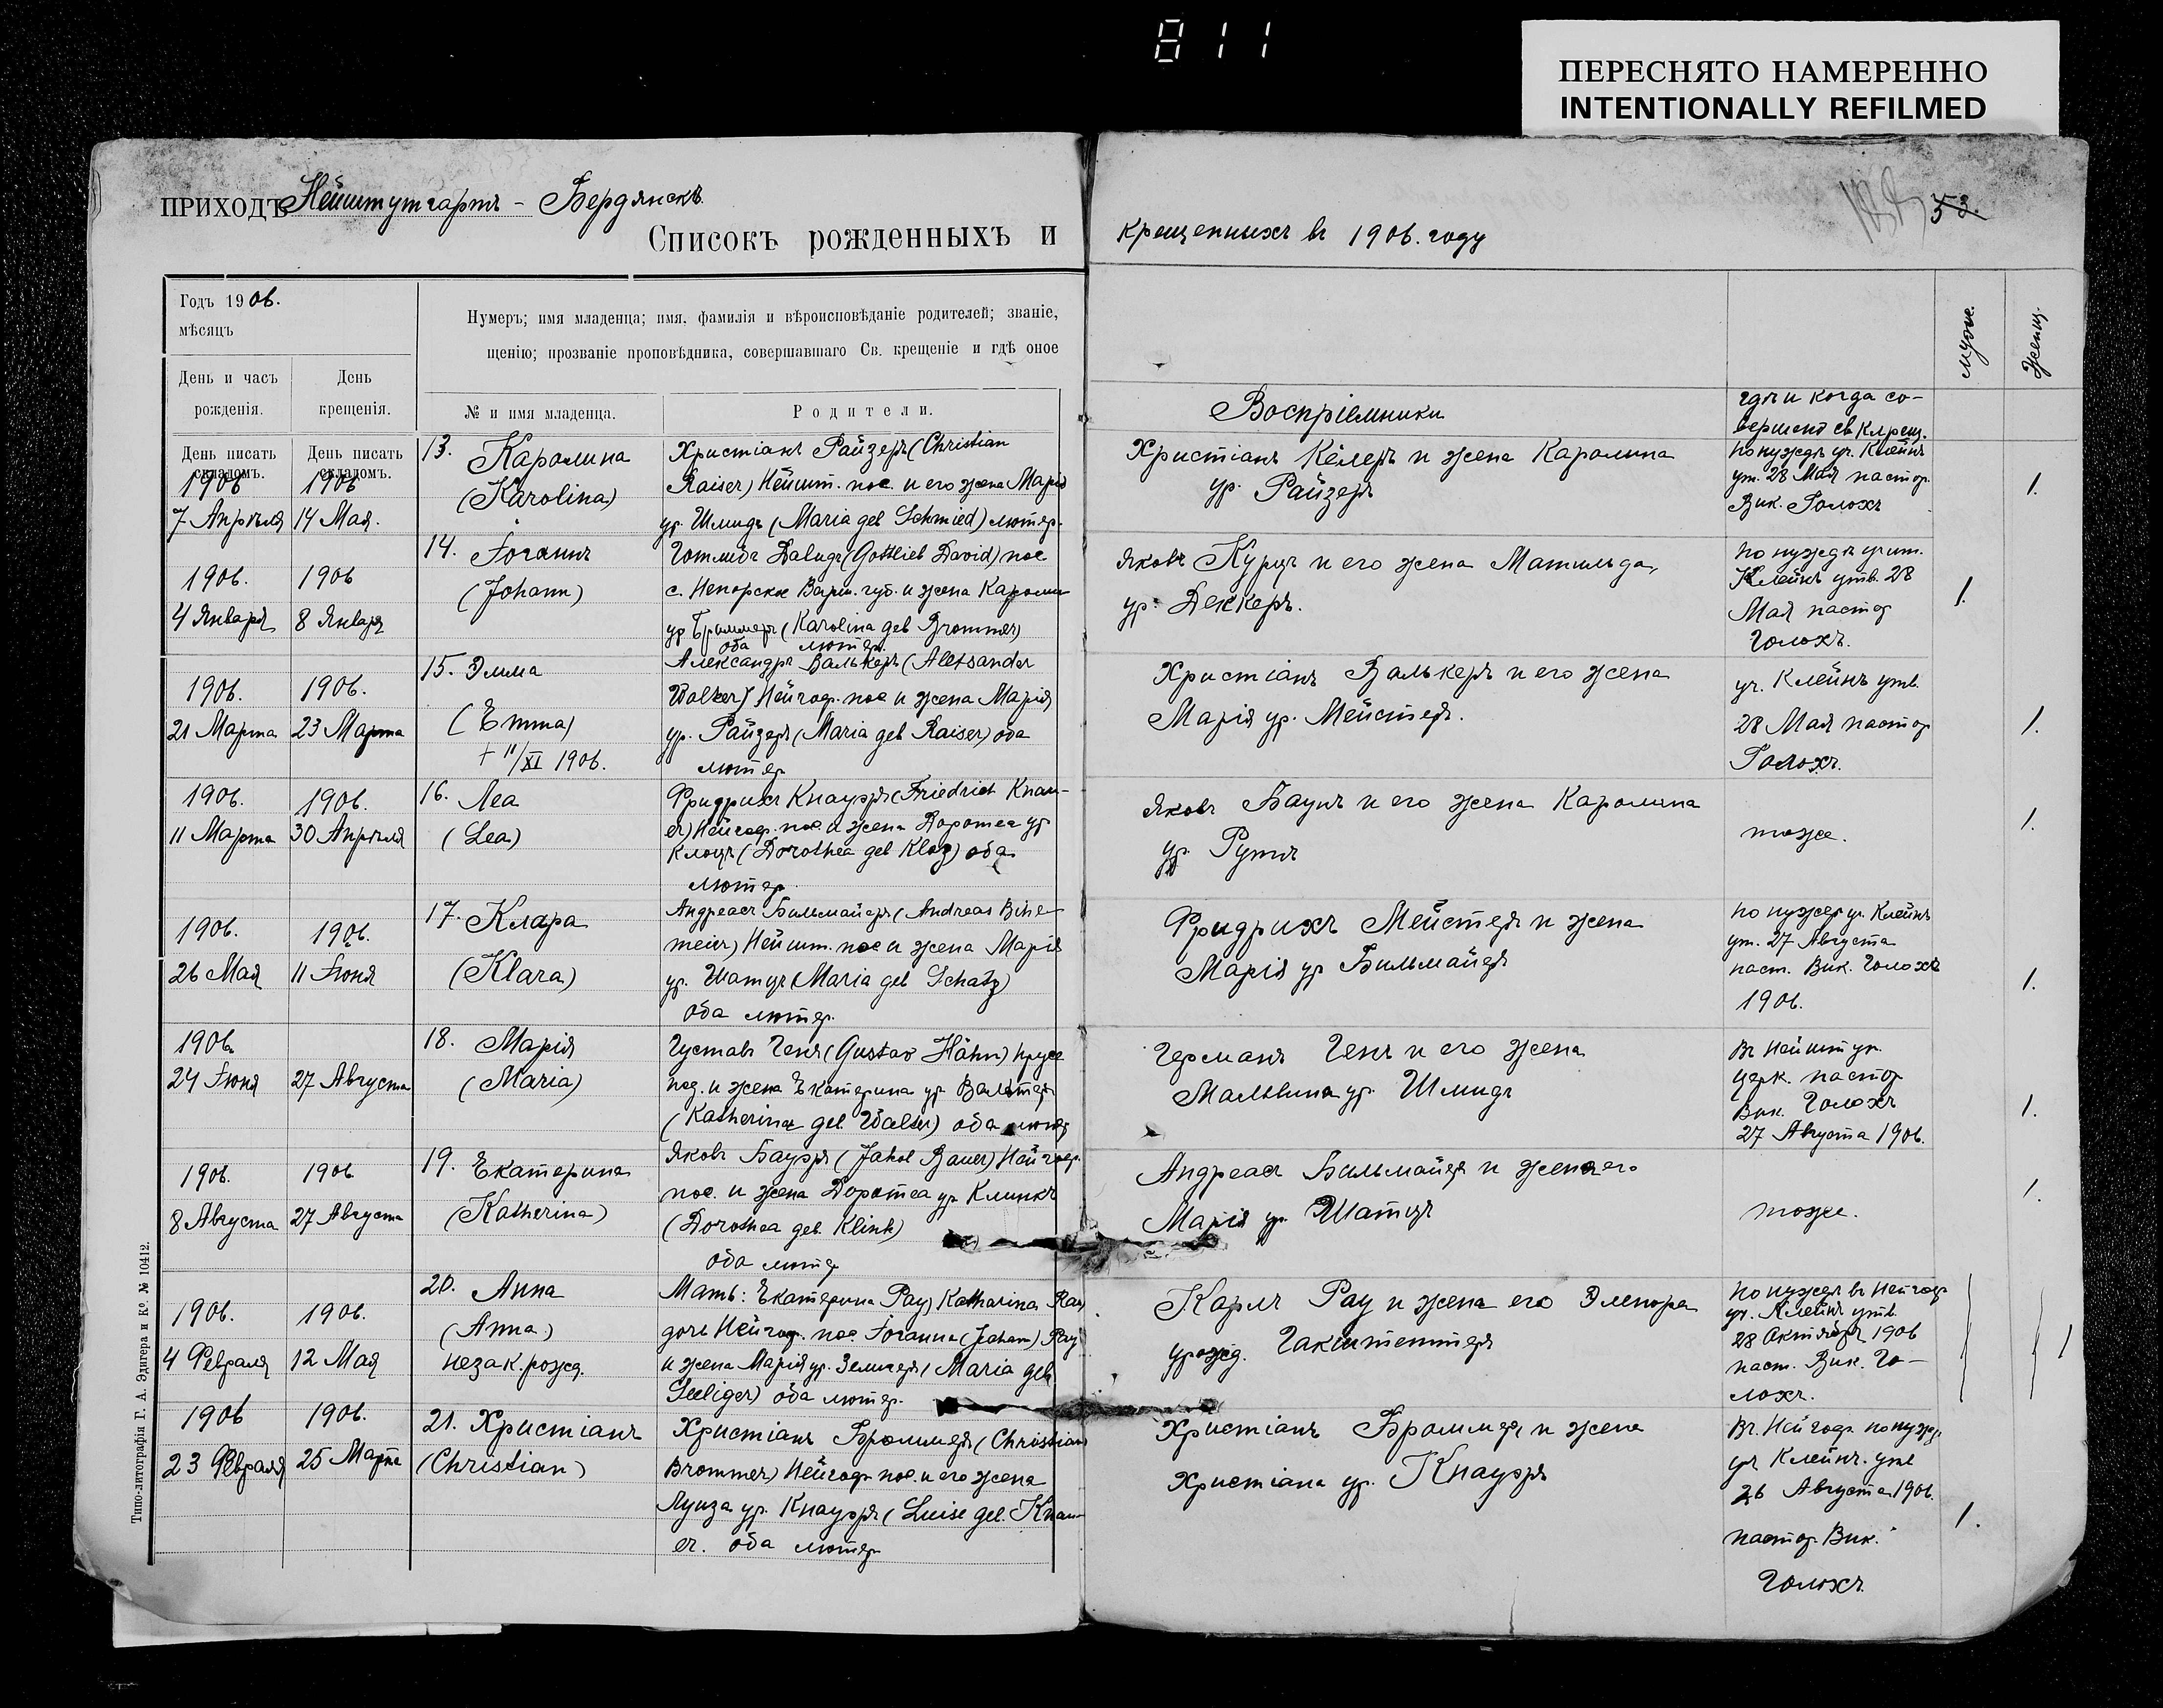 811
ПЕРЕСНЯТО НАМЕРЕННО
INTENTIONALLY REFILMED
ПРИХОДЪ Нейштутгартъ - Бердянскъ.
53.
Списокъ рожденныхъ и крещенныхъ въ 1906. году
Годъ 1906.
мѣсяцъ
Нумеръ; имя младенца; имя, фамилія и вѣроисповѣданіе родителей; званіе,
щенію; прозваніе проповѣдника, совершавшаго Св. крещеніе и гдѣ оное
День и часъ рожденія.
День крещенія.
№ и имя младенца.
Родители.
Воспріемники
гдѣ и когда со-
вершено св. Крещ.
мужск.
Женщ.
День писать складомъ.
День писать складомъ.
1906
7 Апрѣля
1906
14 Мая.
13. Каролина
(Karolina)
Христіанъ Райзеръ (Christian
Raiser) Нейшт. пос. и его жена Марія
ур. Шмидъ (Maria geb Schmied) лютер.
Христіанъ Келеръ и жена Каролина
ур. Райзеръ
По нуждѣ уч. Клейнъ
ут. 28 Мая пастор.
Вик. Голохъ
1.
1906.
4 Января
1906
8 Января
14. Іоганнъ
(Johann)
Готлибъ Давидъ (Gottlieb David) пос
с. Варш. губ. и жена Кароли
ур Броммеръ (Karolina geb Brommer)
оба лютер.
Яковъ Курцъ и его жена Матильда,
ур. Деккеръ.
По нуждѣ учит.
Клейнъ утв. 28
Мая пастор
Голохъ.
1.
1906.
21 Марта
1906.
23 Марта
15. Эмма
(Emma)
+ 11/XI 1906.
Александръ Валькеръ (Aleksander
Walker) Нейгоф. пос и жена Марія
ур. Райзеръ (Maria geb Raiser) оба
лютер
Христіанъ Валькеръ и его жена
Марія ур. Мейстеръ.
уч. Клейнъ утв.
28 Мая пастор
Голохъ.
1.
1906.
11 Марта
1906.
30 Апрѣля
16. Леа
(Lea)
Фридрихъ Кнауэръ (Friedrich Knau-
er) Нейгоф. пос. и жена Доротеа ур
Клоцъ (Dorothea geb Kloz) оба
лютер.
Яковъ Бауръ и его жена Каролина
ур. Рутъ
тоже.
1.
1906.
26 Мая
1906.
11 Іюня
17. Клара
(Klara)
Андреасъ Бильмайеръ (Andreas Bihl-
meier) Нейшт. пос и жена Марія
ур. Шатцъ (Maria geb Schatz)
оба лютер.
Фридрихъ Мейстеръ и жена
Марія ур Бильмайеръ
По нуждѣ уч. Клейнъ
ут. 27 Августа
паст. Вик. Голохъ
1906.
1.
1906
24 Іюня
27 Августа
18. Марія
(Maria)
Густавъ Генъ (Gustav Hähn) прусс
под. и жена Екатерина ур Вальтеръ
(Katherina geb. Walter) оба лютер
Германъ Генъ и его жена
Мальвина ур. Шмидъ
Въ Нейштут.
церк. пастор
Вик. Голохъ
27 Августа 1906.
1.
1906.
8 Августа
1906
27 Августа
19. Екатерина
(Katherina)
Яковъ Бауэръ (Jakob Bauer) Нейгоф.
пос. и жена Доротеа ур Клинкъ
(Dorothea geb. Klink)
оба лютер
Андреасъ Бильмайеръ и жена его
Марія ур. Шатцъ
тоже.
1.
1906.
4 Февраля
1906.
12 Мая
20. Анна
(Anna)
незак. рожд.
Мать: Екатерина Рау, Katharina Rau
дочь Нейгоф. пос. Іоганна (Johann) Рау
и жена Марія ур. Зелигеръ (Maria geb
Seeliger) оба лютер.
Карлъ Рау и жена его Элеонора
урожд. Гакштеттеръ
По нуждѣ въ Нейгоф
уч. Клейнъ утв.
28 Октября 1906
паст. Вик. Го-
лохъ.
1
1906
23 Февраля
1906.
25 Марта
21. Христіанъ
(Christian)
Христіанъ Броммеръ (Christian
Brommer) Нейгоф. пос. и его жена
Луиза ур. Кнауэръ (Luise geb. Knau-
er. оба лютер
Христіанъ Броммеръ и жена
Христіана ур. Кнауэръ
Въ Нейгоф. по нужд.
уч Клейнъ. утв
26 Августа 1906.
пастор. Вик.
Голохъ
1.
Типо-литографія Г. А. Эдигера и Ко. № 10412.